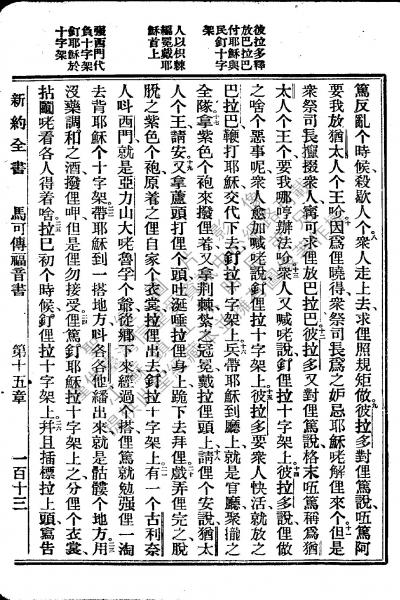 彼拉多釋
放巴拉巴
付耶穌與
民釘十字
架
人以枳棘
編冕戴耶
穌首上
强西門代
負十字架
釘耶穌於
十字架
篤反亂个時候殺歇人个衆人走上去求俚照規矩做彼拉多對俚篤說唔篤阿
要我放猶太人个王吤因爲俚曉得衆祭司長爲之妒忌耶穌咾解俚來个但是
衆祭司長攛掇衆人寗可求俚放巴拉巴彼拉多又對俚篤說格末唔篤稱爲猶
太人个王个要我哪哼辦法吤衆人又喊咾說釘俚拉十字架上彼拉多說俚做
之啥个惡事呢衆人愈加喊咾說釘俚拉十字架上彼拉多要衆人快活就放之
巴拉巴鞭打耶穌交代下去釘拉十字架上兵帶耶穌到廳上就是官廳聚攏之
全隊拿紫色个袍來撥俚着又拿荊棘紮之冠冕戴拉俚頭上請俚个安說猶太
人个王請安又拿蘆頭打俚个頭吐涎唾拉俚身上跪下去拜俚戲弄俚完之脫
脫之紫色个袍原着之俚自家个衣裳拉俚出去釘拉十字架上有一个古利奈
人呌西門就是亞力山大咾魯孚个爺從鄉下來經過个搭俚篤就勉强俚一淘
去背耶穌个十字架帶耶穌到一搭地方呌各各他繙出來就是骷髏个地方用
沒藥調和之酒撥俚呷但是俚勿接受俚篤釘耶穌拉十字架上之分俚个衣裳
拈鬮咾看各人得着啥拉巳初个時候釘俚拉十字架上幷且插標拉上頭寫告
新約全書 馬可傳福音書 第十五章 一百十三